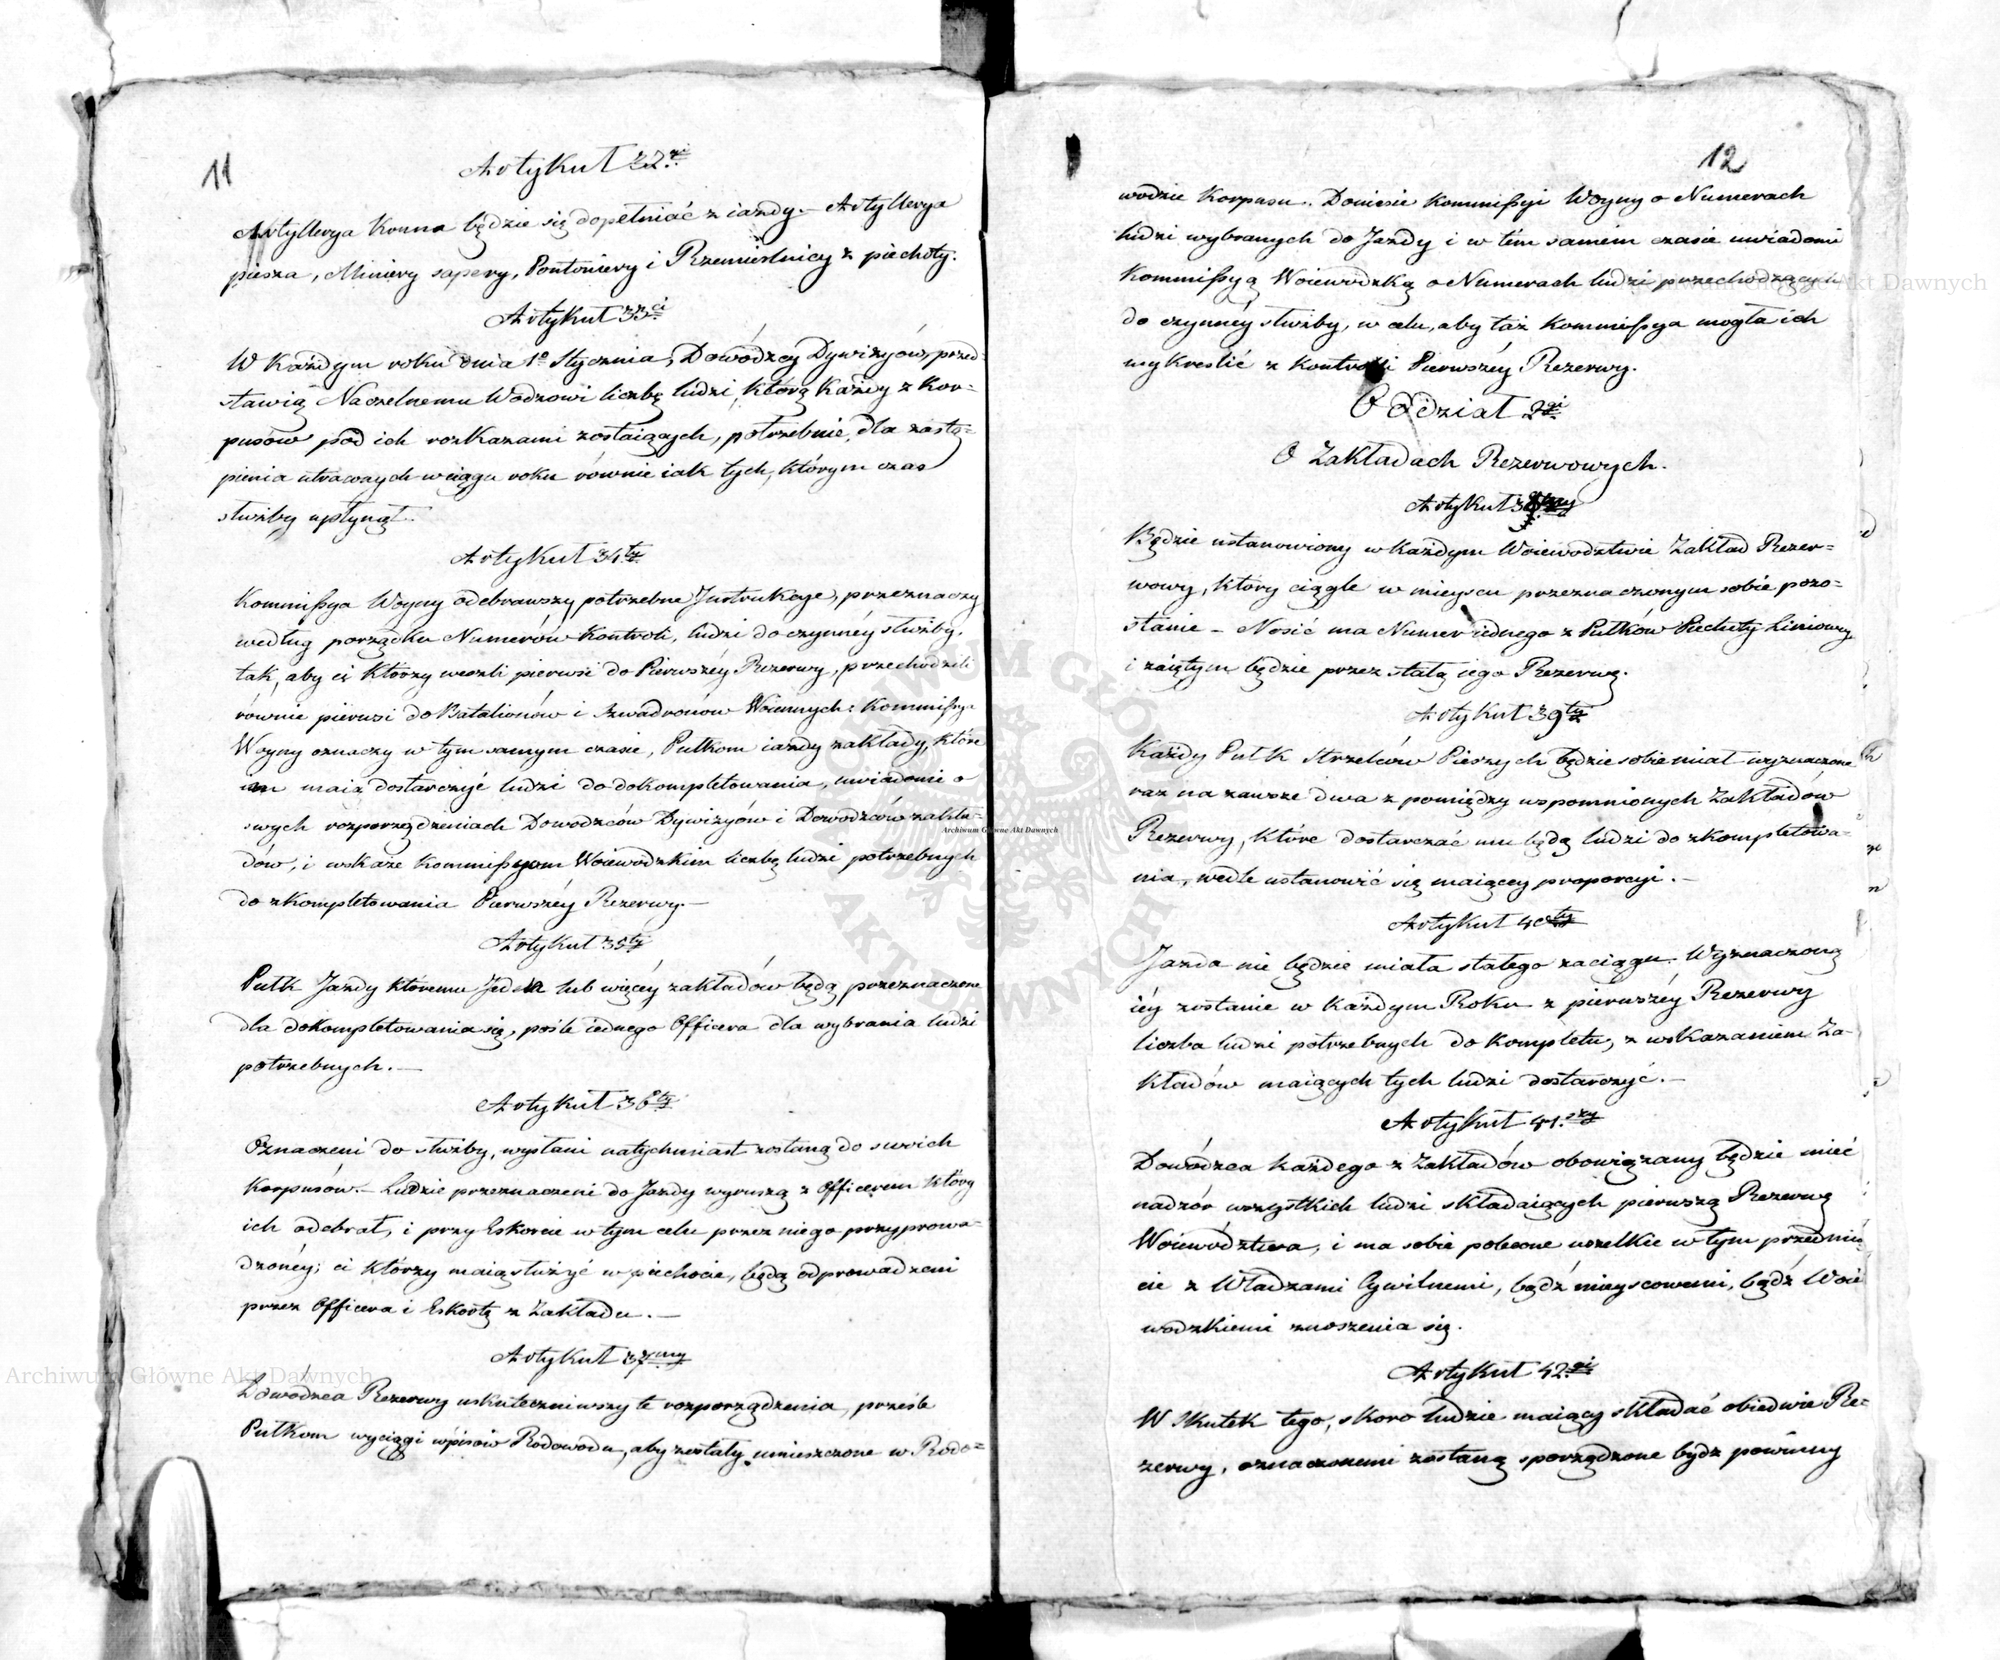 11
Artykuł 32gi
Artyllerya Konna będzie się dopełniać z iazdy. – Artyllerya
piesza, Miniery sapery, Pontoniery i Rzemieślnicy z piechoty.
Artykuł 33ci
W Każdym roku dnia 1o Stycznia, Dowódzcy Dywizyów, przed-
stawią Naczelnemu Wodzowi liczbę ludzi, którą Każdy z Kor-
pusów pod ich rozkazami zostaiących, potrzebuie, dla zastą-
pienia utraconych w ciągu roku równie iak tych, którym czas
służby upłynął.
Artykuł 34ty
Kommissya Woyny odebrawszy potrzebne Instrukcye, przeznaczy
według porządku Numerów Kontroli, ludzi do czynnéy służby,
tak, aby ci którzy weszli pierwsi do Pierwszéy Rezerwy, przechodzili
równie pierwsi do Batalionów i Szwadronów Woiennych: Kommissya
Woyny oznaczy w tym samym czasie, Pułkom iazdy zakłady, które
im maią dostarczyć ludzi do dokompletowania, uwiadomi o
swych rozporządzeniach Dowodzców Dywizyów i Dowodzców zakła-
dów, i wskaże Kommissyom Woiewodzkim liczbę ludzi potrzebnych
do zkompletowania Pierwszéy Rezerwy. –
Artykuł 35ty
Pułk Jazdy któremu Jeden lub więcéy zakładów będą przeznaczone
dla dokompletowania się, pośle iednego Officera dla wybrania ludzi
potrzebnych. –
Artykuł 36ty
Oznaczeni do służby, wysłani natychmiast zostaną do swoich
Korpusów. – Ludzie przeznaczeni do Jazdy wyruszą z Officerem który
ich odebrał, i przy Eskorcie w tym celu przez niego przyprowa-
dzonéy; ci którzy maią służyć w piechocie, będą odprowadzeni
przez Officera i Eskortę z Zakładu. –
Artykuł 37my
Dowodzca Rezerwy uskuteczniwszy te rozporządzenia, prześle
Pułkom wyciągi wpisów Rodowodu, aby zostały umieszczone w Rodo-
12
wodzie Korpusu. Doniesie Kommissyi Woyny o Numerach
ludzi wybranych do Jazdy i w tém samém czasie uwiadomi
Kommissyą Woiewodzką o Numerach ludzi przechodzących
do czynnéy służby, w celu, aby taż Kommissya mogła ich
wykreślić z Kontroli Pierwszéy Rezerwy.
Oddział 2gi
O Zakładach Rezerwowych.
Artykuł 38my
Będzie ustanowiony w Każdym Woiewodztwie Zakład Rezer-
wowy, który ciągle w mieyscu przeznaczonym sobie pozo-
stanie – Nosić ma Numer iednego z Pułków Piechoty Liniowey
i zaiętym będzie przez stałą iego Rezerwę.
Artykuł 39ty
Każdy Pułk Strzelców Pieszych będzie sobie miał wyznaczone
raz na zawsze dwa z pomiędzy wspomnionych Zakładów
Rezerwy, które dostarczać mu będą ludzi do zkompletowa-
nia, wedle ustanowić się maiącey proporcyi. –
Artykuł 40ty
Jazda nie będzie miała stałego zaciągu. Wyznaczoną
iéy zostanie w Każdym Roku z pierwszéy Rezerwy
liczba ludzi potrzebnych do Kompletu, z wskazaniem Za-
kładów maiących tych ludzi dostarczyć. –
Artykuł 41.szy
Dowódzca każdego z Zakładów obowiązany będzie mieć
nadzór wszystkich ludzi składaiących pierwszą Rezerwę
Woiewództwa, i ma sobie polecone wszelkie w tym przedmio-
cie z Władzami Cywilnemi, bądź mieyscowemi, bądź Woie
wodzkiemi znoszenia się.
Artykuł 42gi
W Skutek tego, skoro ludzie maiący składać obiedwie Re-
zerwy, oznaczonemi zostaną sporządzone bydz powinny
Archiwum Główne Akt Dawnych
Archiwum Główne Akt Dawnych
Archiwum Główne Akt Dawnych
ARCHIWUM GŁÓWNE AKT DAWNYCH